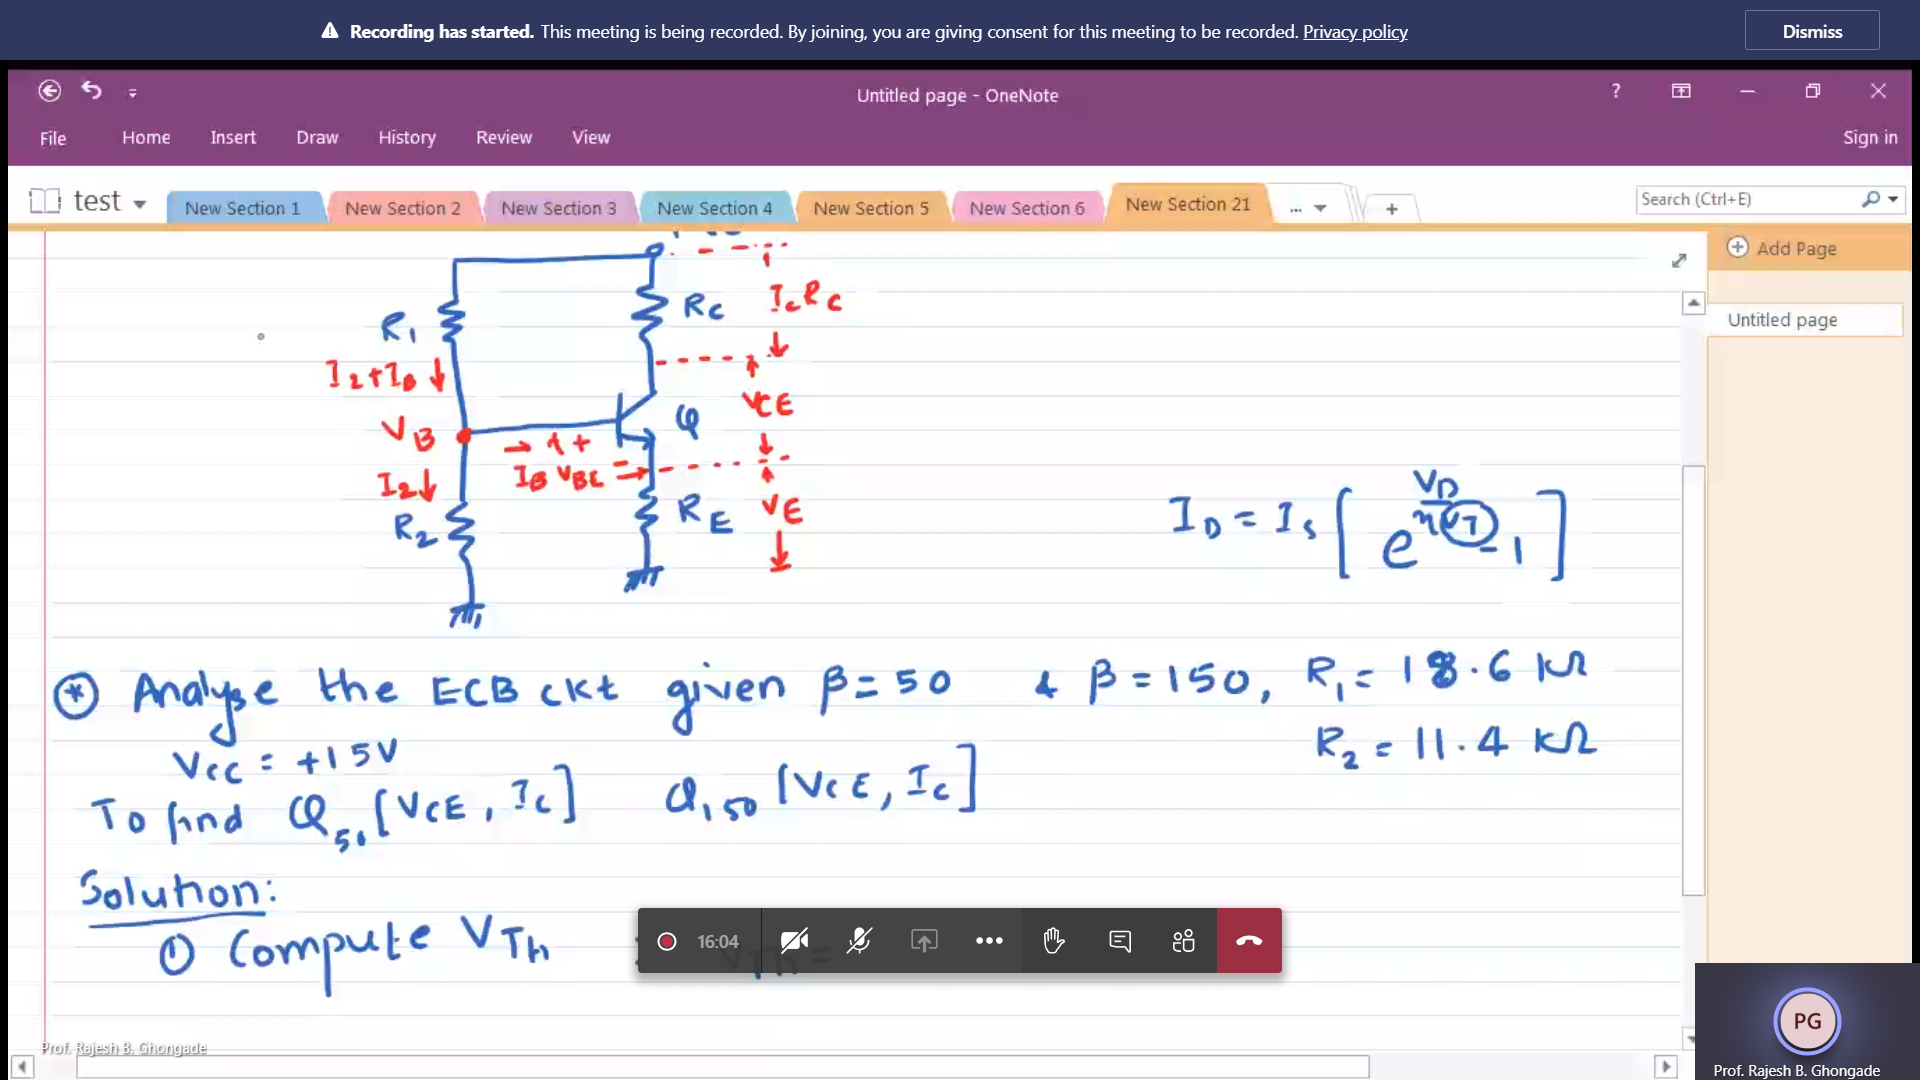 Recording has started. This meeting is being recorded. By joining, you are giving consent for this meeting to be recorded. Privacy policy
Dismiss
Untitled page - OneNote
?
File Home Insert Draw History Review View
Sign in
test
New Section 1
New Section 2
New Section 3
New Section 4
New Section 5
New Section 6
New Section 21
...
+
Search (Ctrl+E)
Add Page
Untitled page
R1
RC
ICRC
I2+IB
VCE
Q
VB
IB VBE
+
-
I2
R2
RE
VE
ID = IS [e^(VD/nVT) - 1]
* Analyse the ECB ckt given β = 50 & β = 150, R1 = 18.6 kΩ
VCC = +15V
R2 = 11.4 kΩ
To find Q50 [VCE, IC] Q150 [VCE, IC]
Solution:
① Compute VTh : VTh =
16:04
Prof. Rajesh B. Ghongade
PG
Prof. Rajesh B. Ghongade